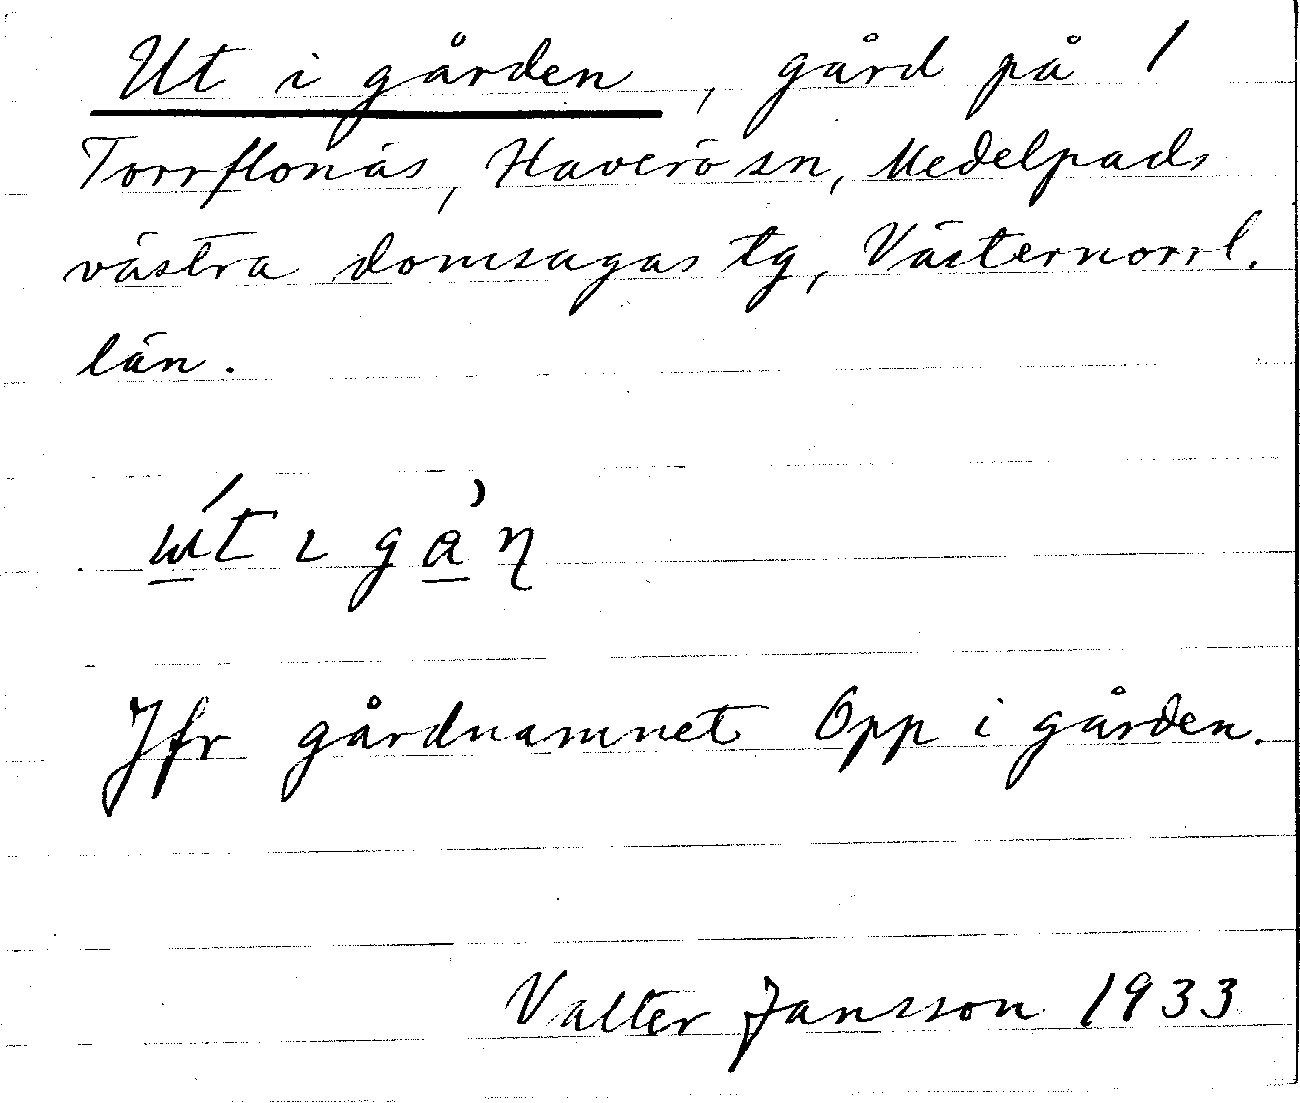 Ut i gården, gård på 1
Torrflonäs, Haverö sn, Medelpads
västra domsagas tg, Västernorrl.
län.
ɯ́t ɩ gà̠ƞ
Jfr gårdnamnet Opp i gården.
Valter Jansson 1933